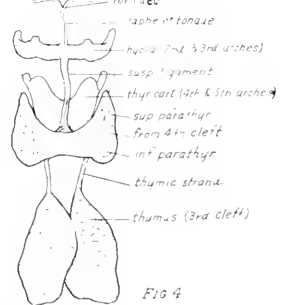 raphe of tongue
hyoid (2nd & 3rd arches)
susp ligament
thyr cart (4th & 5th arches)
sup parathyr
from 4th cleft
inf parathyr
thymic strand
thymus (3rd cleft)
FIG 4